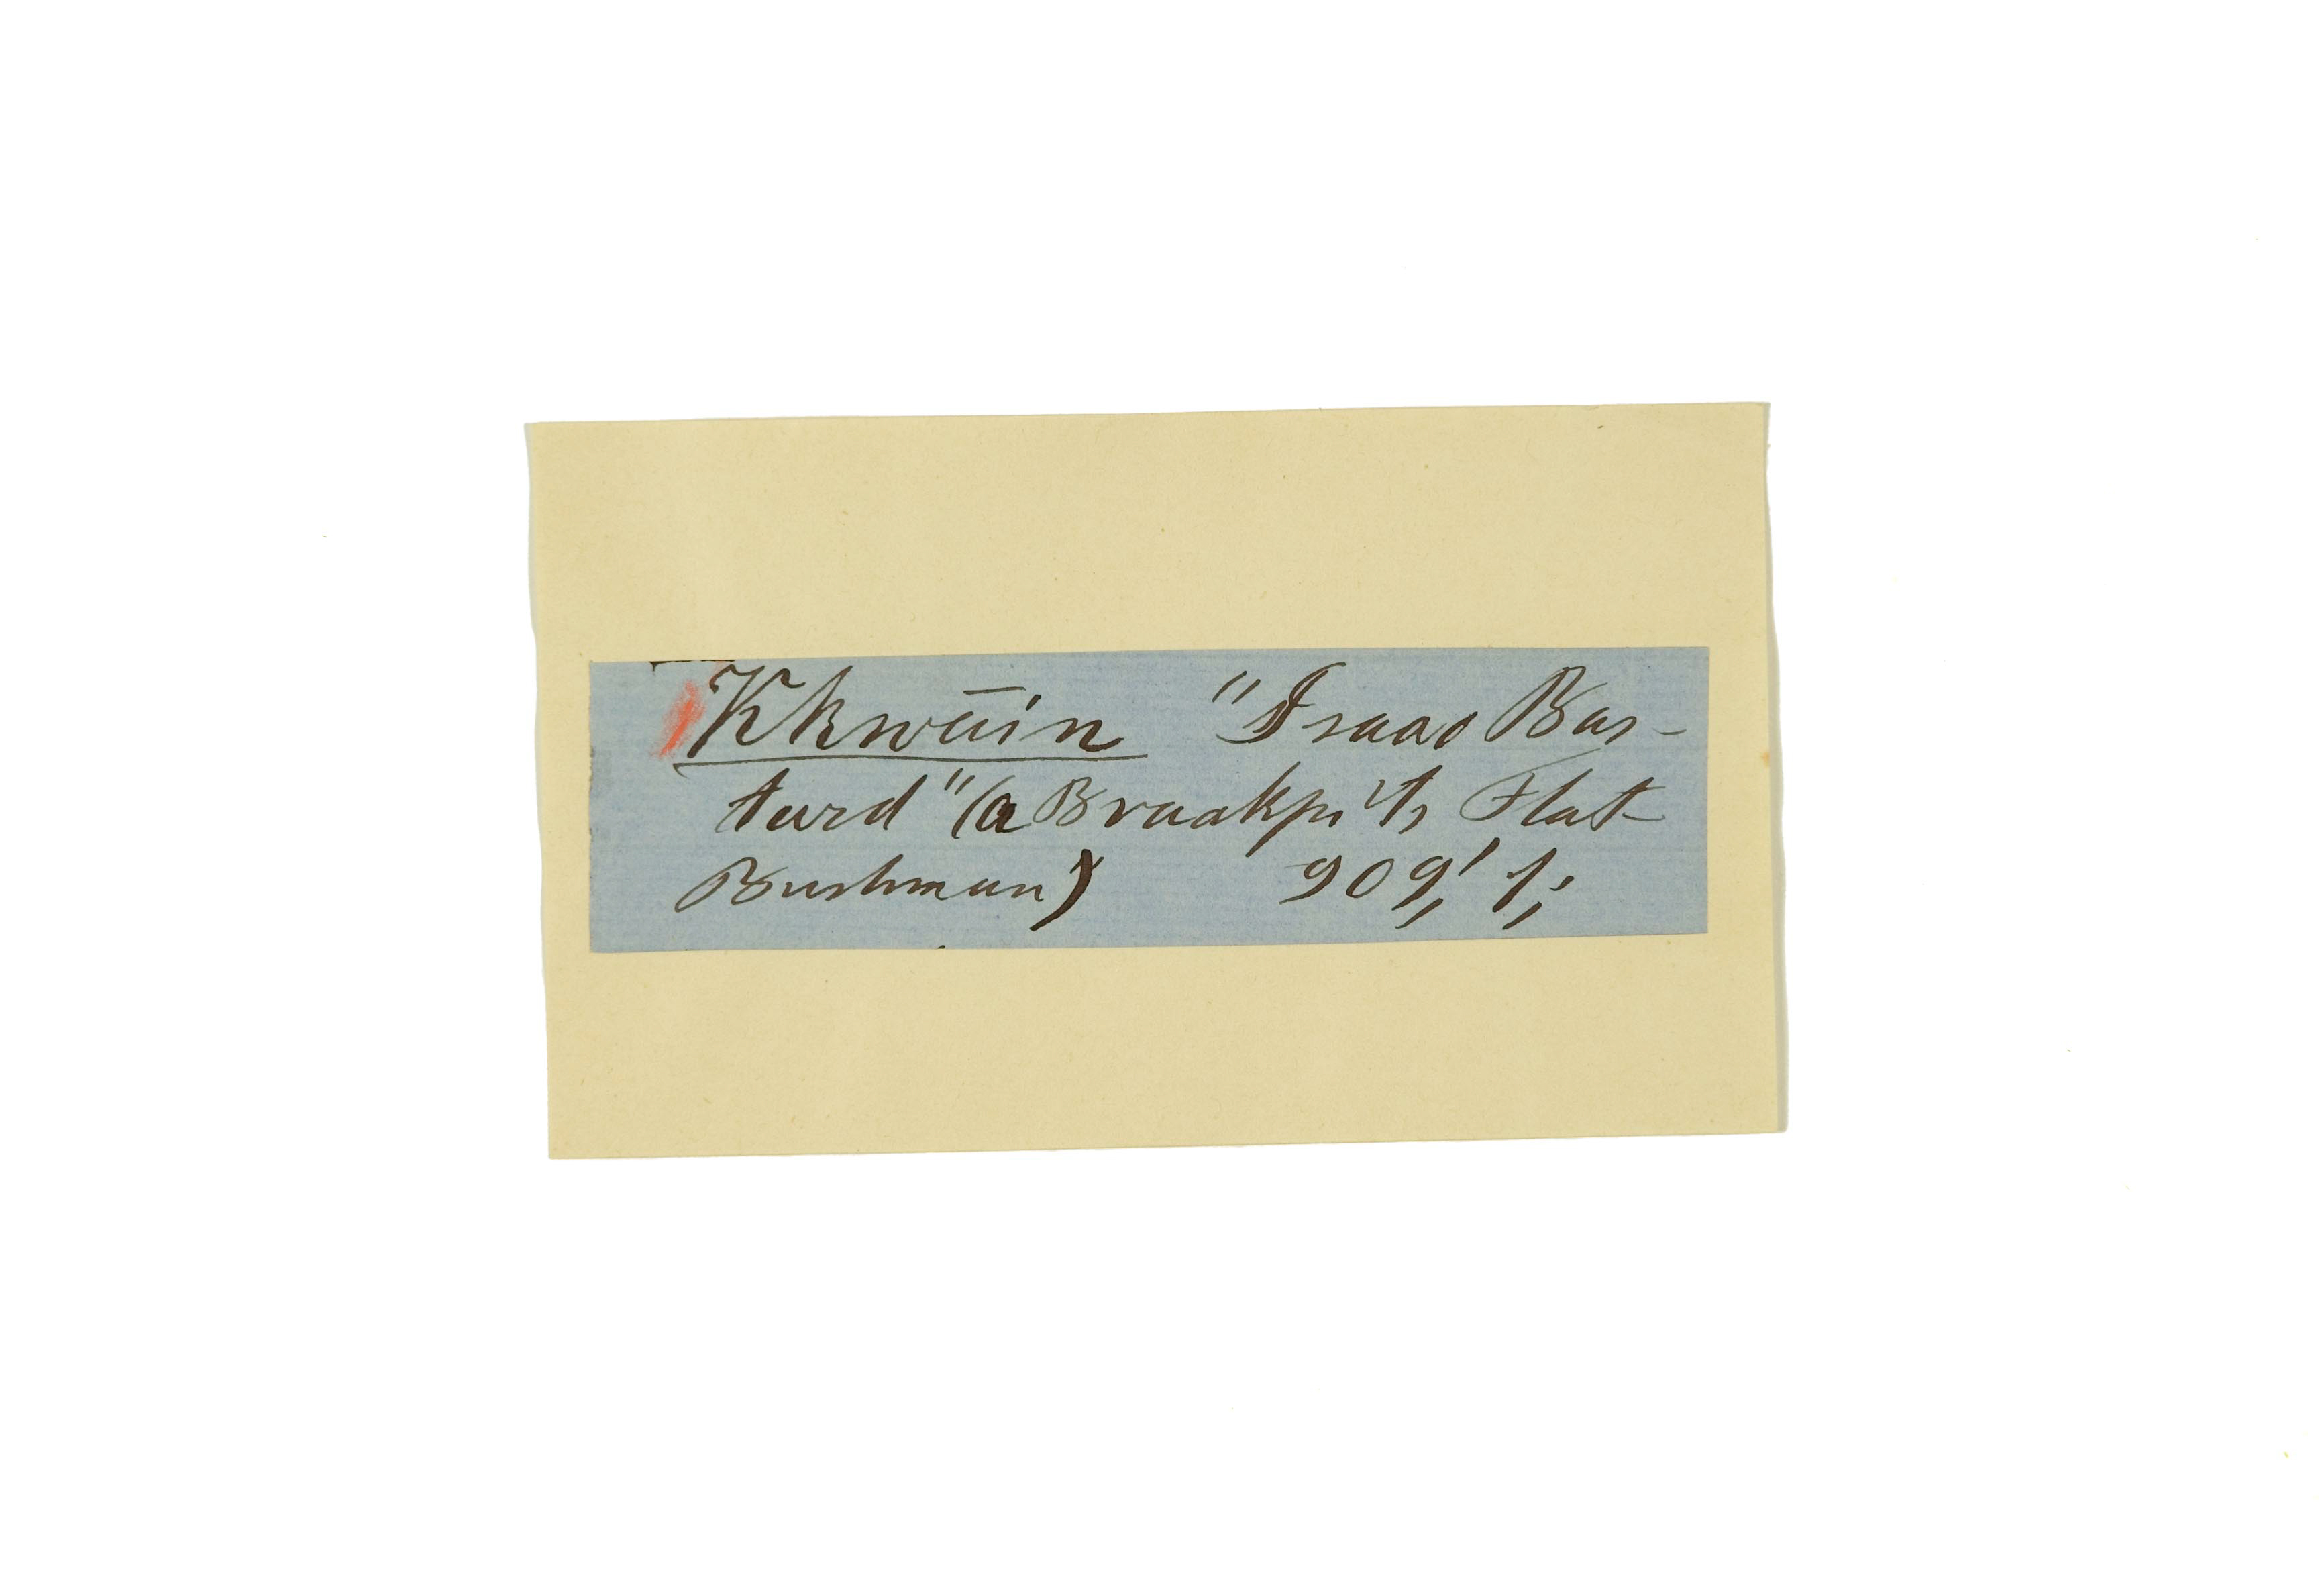 Kkwāin "Isaac Bas-
tard" (a Braakpits Flat
Bushman) 909,' 1,;